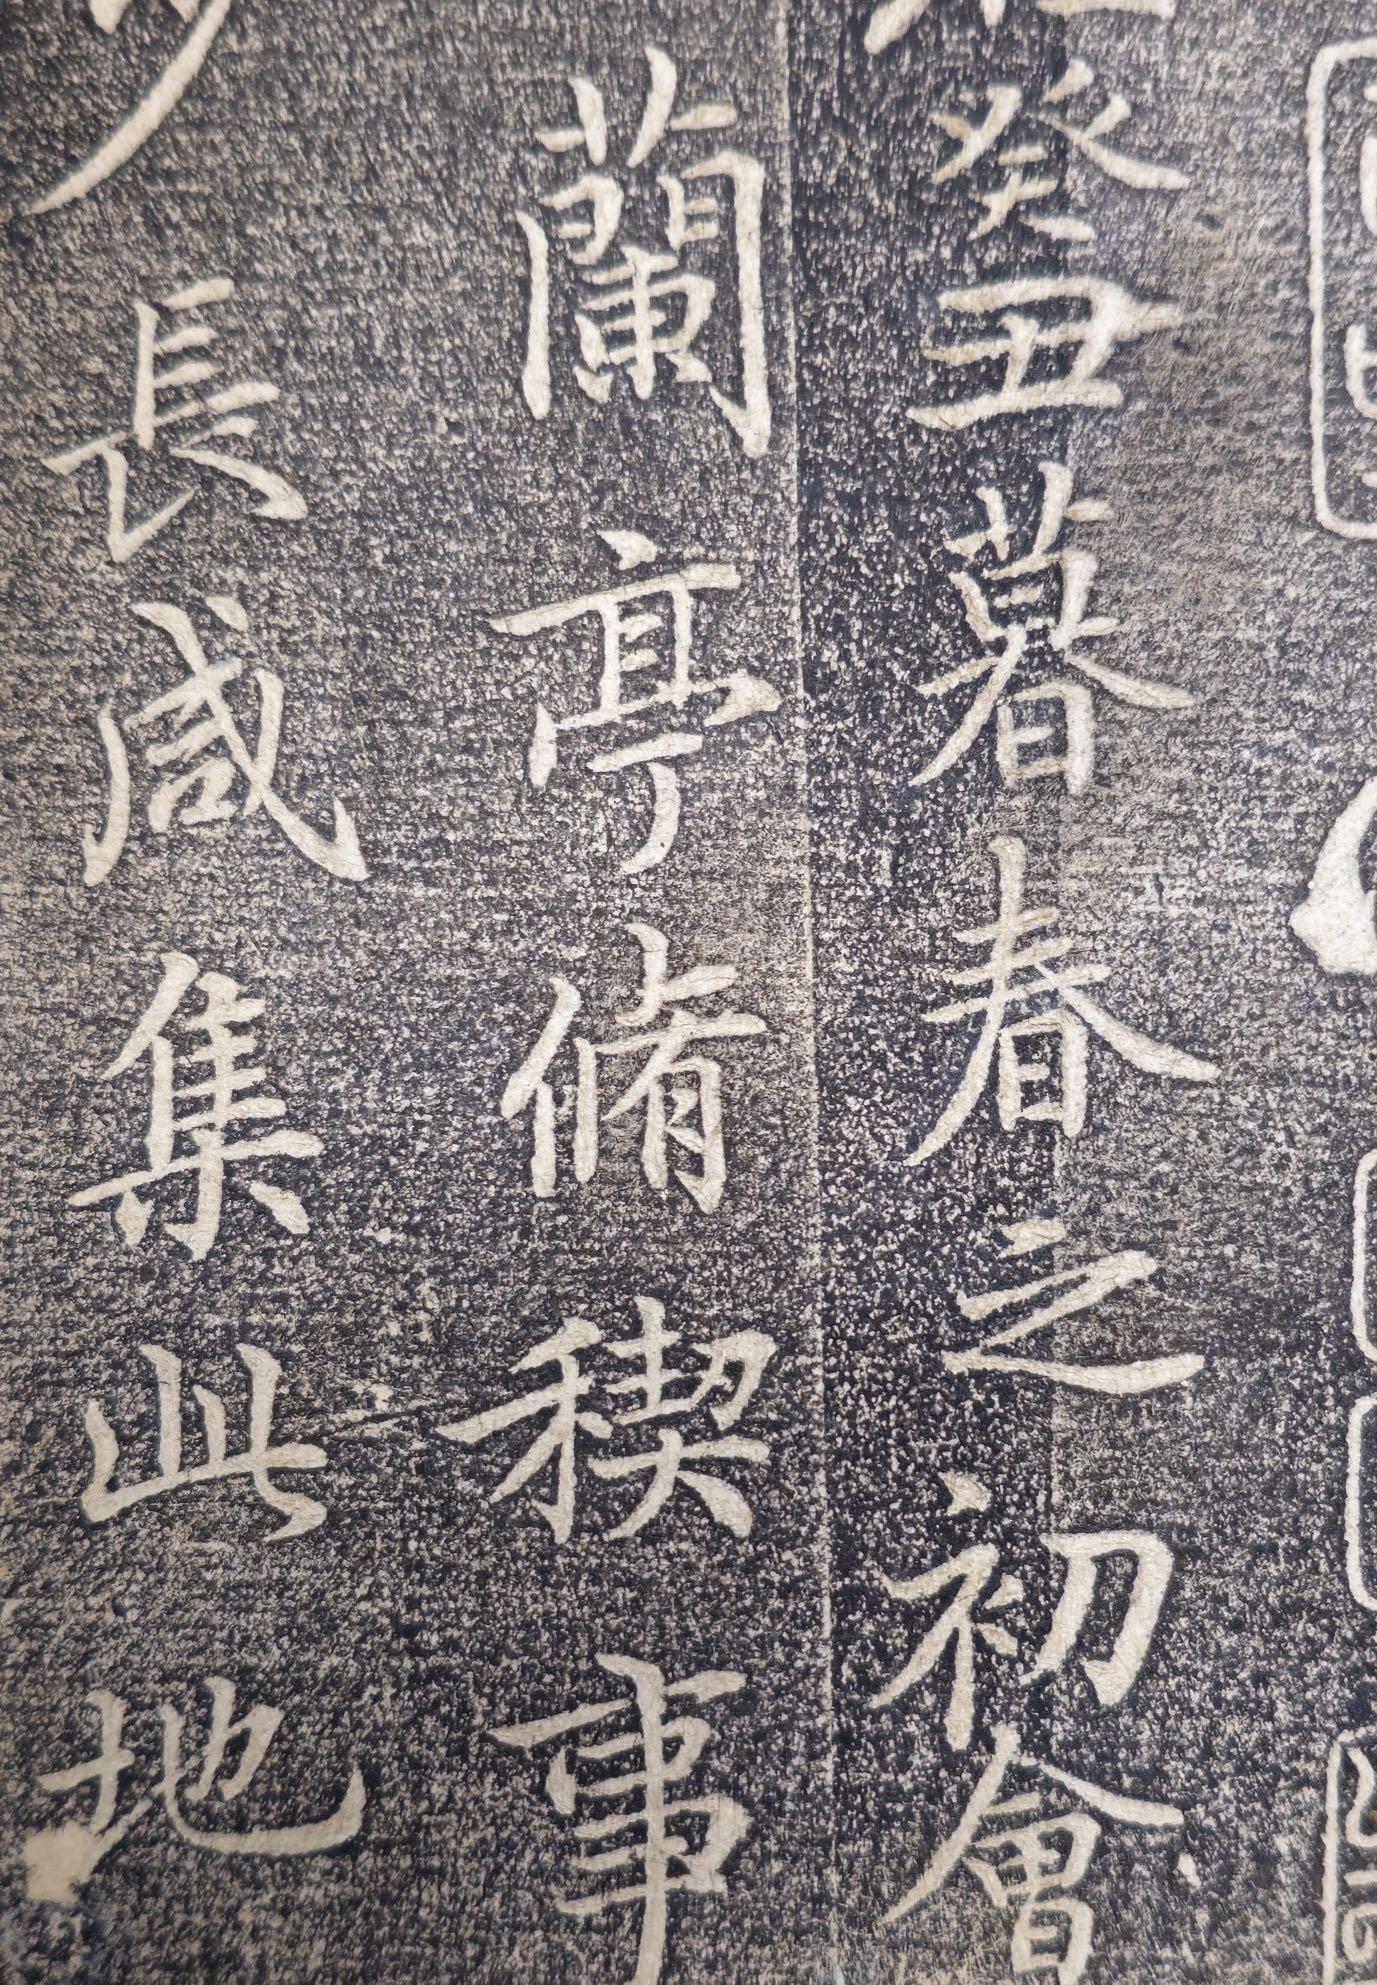 癸丑暮春之初會
蘭亭脩稧事
長咸集此地